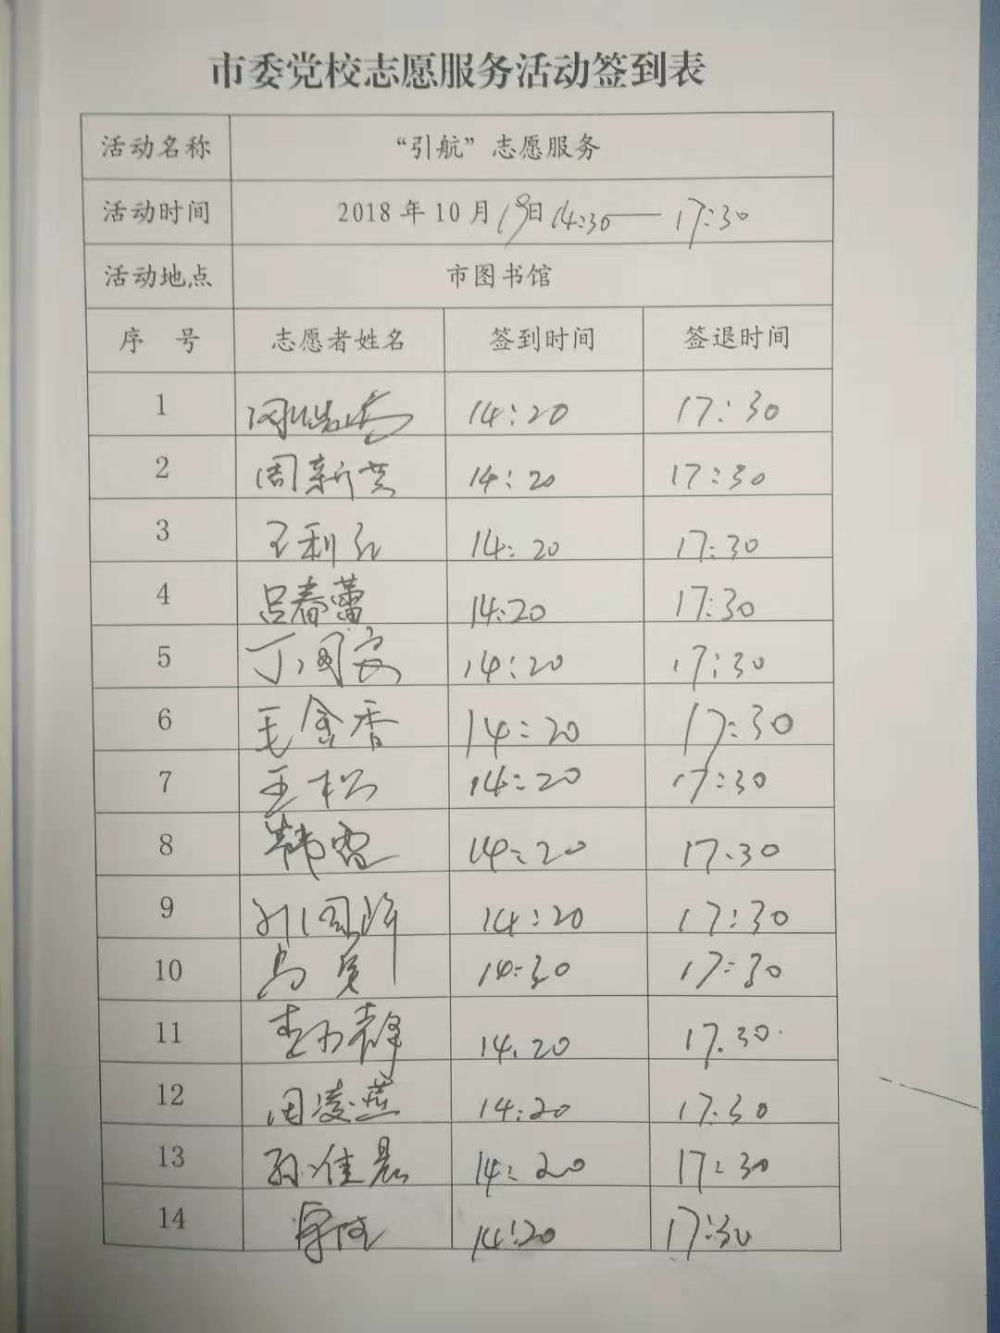 市委党校志愿服务活动签到表
活动名称 “引航”志愿服务
活动时间 2018年10月19日 14:30—17:30
活动地点 市图书馆
序 号 志愿者姓名 签到时间 签退时间
1 14:20 17:30
2 周新芸 14:20 17:30
3 王利红 14:20 17:30
4 吕春蕾 14:20 17:30
5 丁国安 14:20 17:30
6 毛金香 14:20 17:30
7 王松 14:20 17:30
8 韩雷 14:20 17:30
9 14:20 17:30
10 14:30 17:30
11 14.20 17.30
12 周凌燕 14:20 17:30
13 孙佳晨 14:20 17:30
14 14:20 17:30